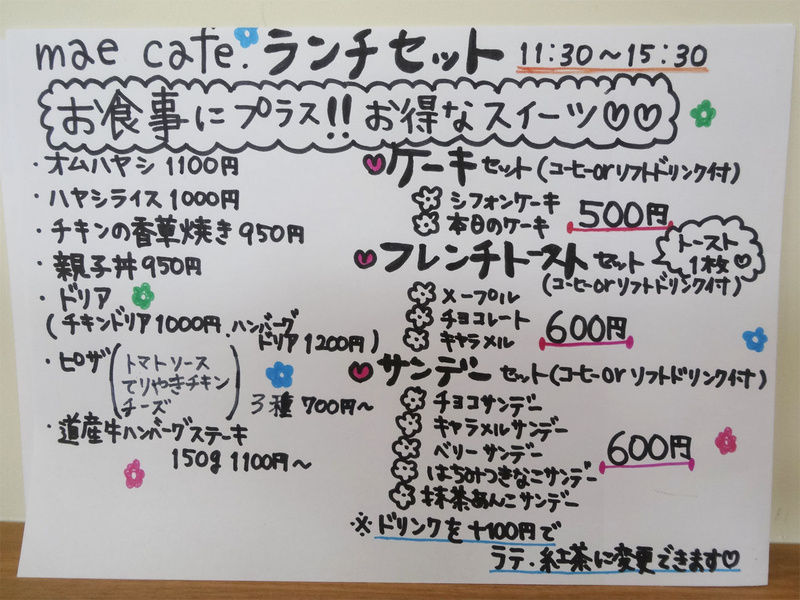 mae cafe. ランチセット 11:30～15:30
お食事にプラス!! お得なスイーツ♡♡
・オムハヤシ 1100円
・ハヤシライス 1000円
・チキンの香草焼き 950円
・親子丼 950円
・ドリア
(チキンドリア 1000円、ハンバーグ
ドリア 1200円)
・ピザ(トマトソース
てりやきチキン
チーズ) 3種 700円～
・道産牛ハンバーグステーキ
150g 1100円～
ケーキセット(コーヒーorソフトドリンク付)
シフォンケーキ
本日のケーキ
500円
フレンチトーストセット
トースト
1枚♡
(コーヒーorソフトドリンク付)
メープル
チョコレート
キャラメル
600円
サンデーセット(コーヒーorソフトドリンク付)
チョコサンデー
キャラメルサンデー
ベリーサンデー
はちみつきなこサンデー
抹茶あんこサンデー
600円
※ドリンクを+100円で
ラテ・紅茶に変更できます♡